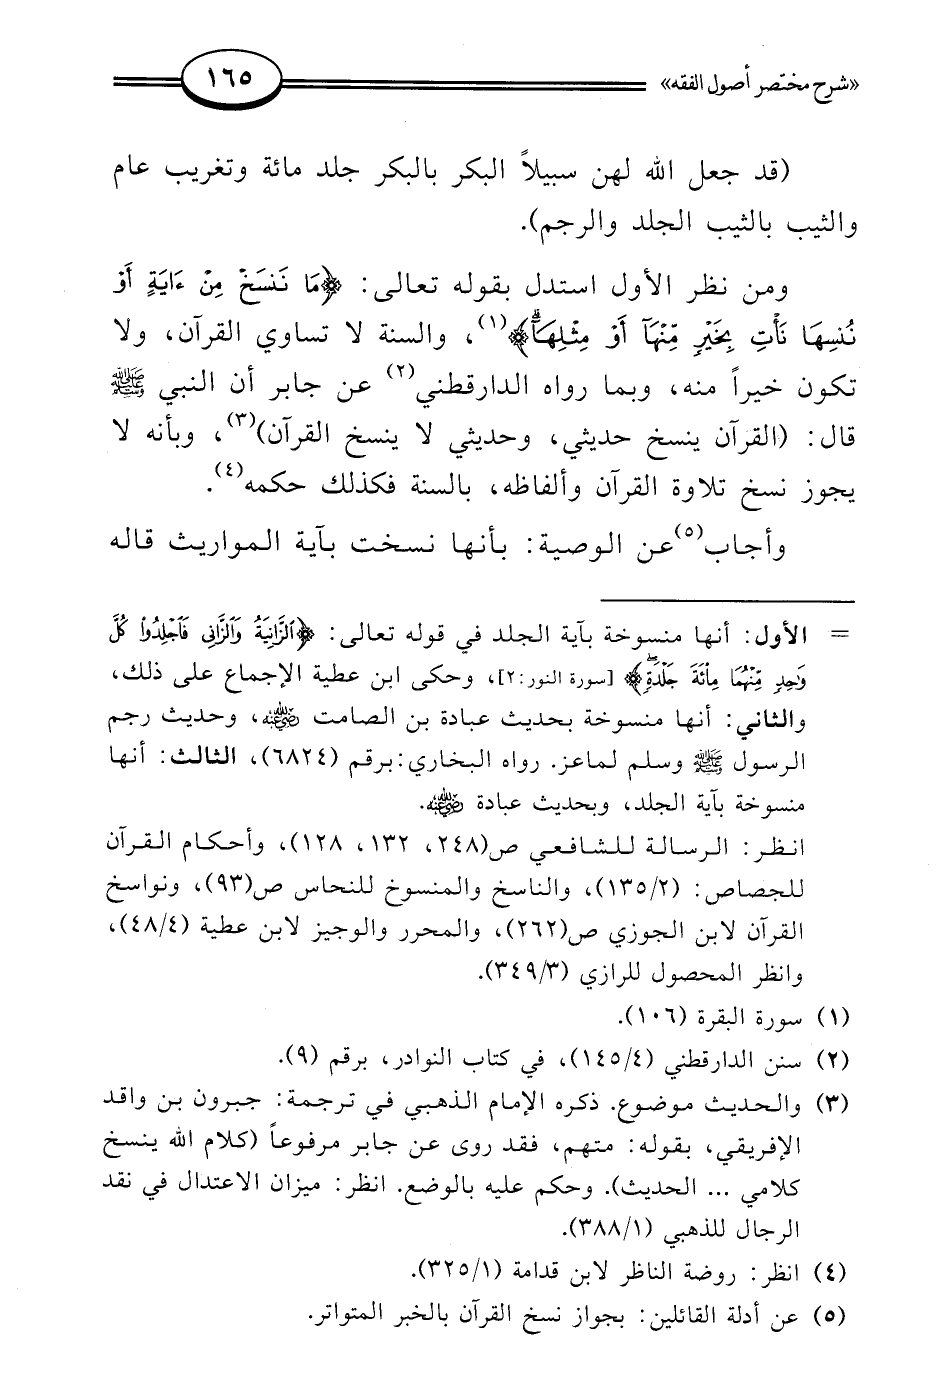 «شرح مختصر أصول الفقه» ١٦٥
(قد جعل الله لهن سبيلاً البكر بالبكر جلد مائة وتغريب عام
والثيب بالثيب الجلد والرجم).
ومن نظر الأول استدل بقوله تعالى: ﴿مَا نَنسَخْ مِنْ ءَايَةٍ أَوْ
نُنسِهَا نَأْتِ بِخَيْرٍ مِّنْهَآ أَوْ مِثْلِهَآ﴾(١)، والسنة لا تساوي القرآن، ولا
تكون خيراً منه، وبما رواه الدارقطني(٢) عن جابر أن النبي ﷺ
قال: (القرآن ينسخ حديثي، وحديثي لا ينسخ القرآن)(٣)، وبأنه لا
يجوز نسخ تلاوة القرآن وألفاظه، بالسنة فكذلك حكمه(٤).
وأجاب(٥)عن الوصية: بأنها نسخت بآية المواريث قاله
= الأول: أنها منسوخة بآية الجلد في قوله تعالى: ﴿ٱلزَّانِيَةُ وَٱلزَّانِى فَٱجْلِدُوا۟ كُلَّ
وَٰحِدٍ مِّنْهُمَا مِا۟ئَةَ جَلْدَةٍ﴾ [سورة النور:٢]، وحكى ابن عطية الإجماع على ذلك،
والثاني: أنها منسوخة بحديث عبادة بن الصامت رضي الله عنه، وحديث رجم
الرسول ﷺ وسلم لماعز. رواه البخاري:برقم (٦٨٢٤)، الثالث: أنها
منسوخة بآية الجلد، وبحديث عبادة رضي الله عنه.
انظر: الرسالة للشافعي ص(٢٤٨، ١٣٢، ١٢٨)، وأحكام القرآن
للجصاص: (١٣٥/٢)، والناسخ والمنسوخ للنحاس ص(٩٣)، ونواسخ
القرآن لابن الجوزي ص(٢٦٢)، والمحرر والوجيز لابن عطية (٤٨/٤)،
وانظر المحصول للرازي (٣٤٩/٣).
(١) سورة البقرة (١٠٦).
(٢) سنن الدارقطني (١٤٥/٤)، في كتاب النوادر، برقم (٩).
(٣) والحديث موضوع. ذكره الإمام الذهبي في ترجمة: جبرون بن واقد
الإفريقي، بقوله: متهم، فقد روى عن جابر مرفوعاً (كلام الله ينسخ
كلامي ... الحديث). وحكم عليه بالوضع. انظر: ميزان الاعتدال في نقد
الرجال للذهبي (٣٨٨/١).
(٤) انظر: روضة الناظر لابن قدامة (٣٢٥/١).
(٥) عن أدلة القائلين: بجواز نسخ القرآن بالخبر المتواتر.